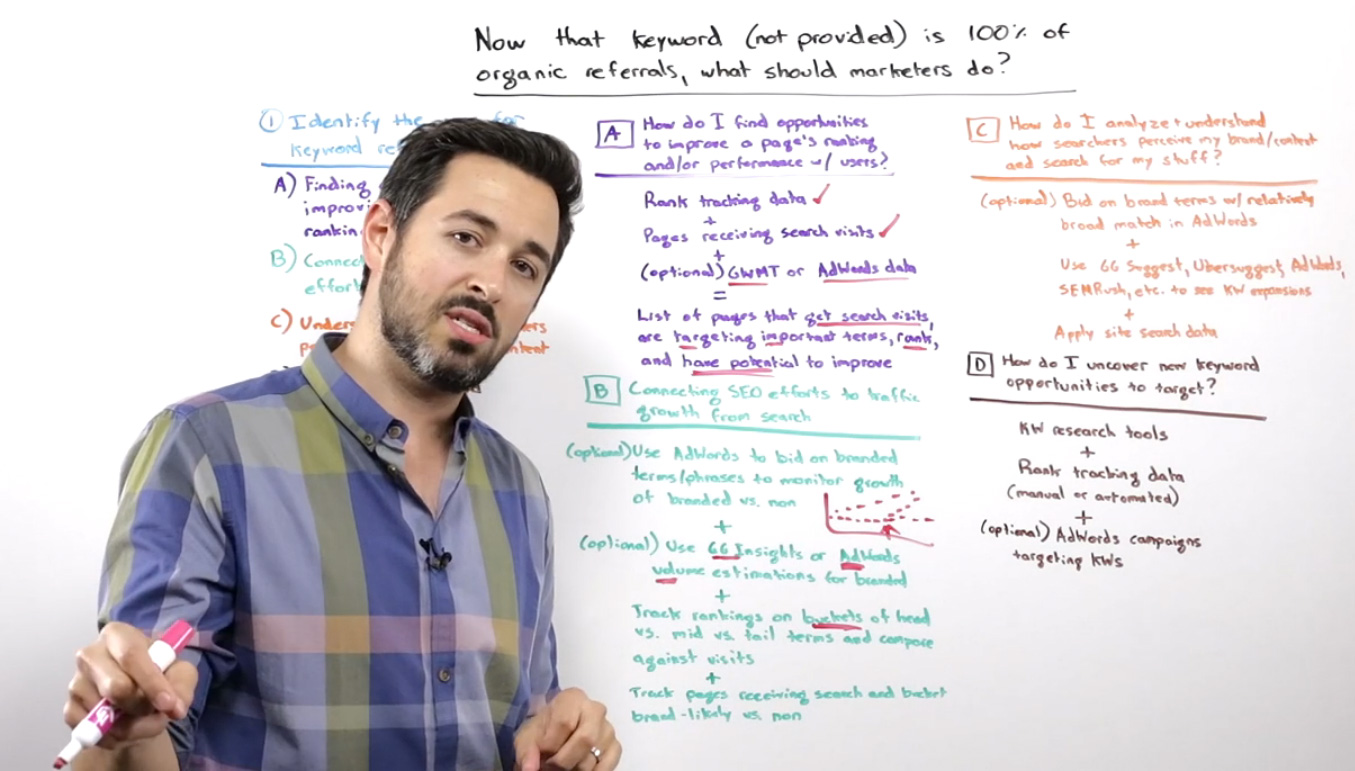 Now that keyword (not provided) is 100% of
organic referrals, what should marketers do?
① Identify the for
keyword
A) Finding
improvi
rankin
B) Connec
effort
C) Under ers
p tent
A How do I find opportunities
to improve a page's ranking
and/or performance w/ users?
Rank tracking data ✓
+
Pages receiving search visits ✓
+
(optional) GWMT or AdWords data
=
List of pages that get search visits,
are targeting important terms, rank,
and have potential to improve
B Connecting SEO efforts to traffic
growth from search
(optional) Use AdWords to bid on branded
terms/phrases to monitor growth
of branded vs. non
+
(optional) Use GG Insights or AdWords
volume estimations for branded
+
Track rankings on buckets of head
vs. mid vs. tail terms and compare
against visits
+
Track pages receiving search and bucket
brand-likely vs. non
C How do I analyze + understand
how searchers perceive my brand/content
and search for my stuff?
(optional) Bid on brand terms w/ relatively
broad match in AdWords
+
Use GG Suggest, Ubersuggest, AdWords,
SEMRush, etc. to see KW expansions
+
Apply site search data
D How do I uncover new keyword
opportunities to target?
KW research tools
+
Rank tracking data
(manual or automated)
+
(optional) AdWords campaigns
targeting KWs